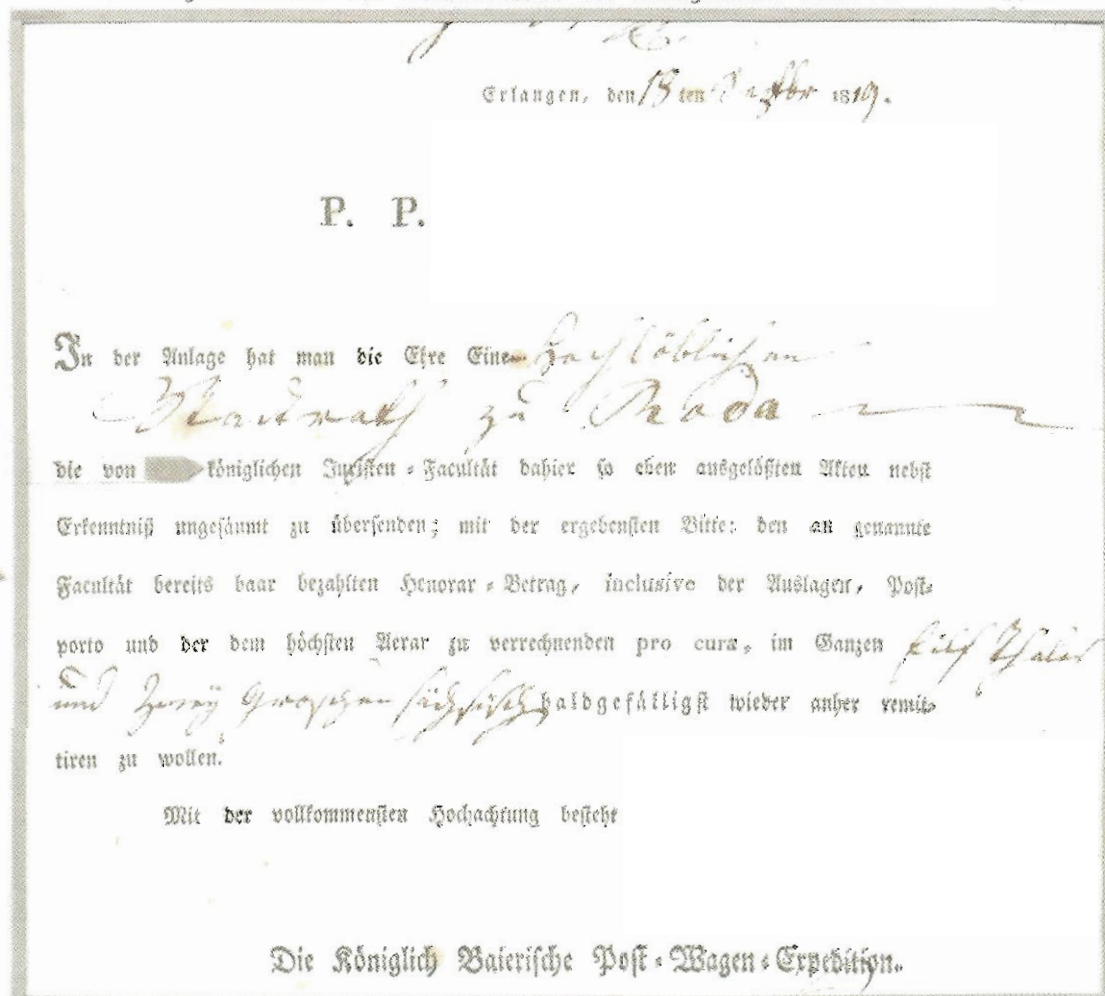 Erlangen, den 18 ten Decbr 1819.
P. P.
In der Anlage hat man die Ehre Eine Hochlöblichen
Stadtrath zu Roda
die von königlichen Juristen-Facultät dahier so eben ausgelößten Akten nebst
Erkenntniß ungesäumt zu übersenden; mit der ergebensten Bitte: den an genannte
Facultät bereits baar bezahlten Honorar-Betrag, inclusive der Auslagen, Post-
porto und der dem höchsten Aerar zu verrechnenden pro cura, im Ganzen Eilf Thaler
und Zwey Groschen sächsisch baldgefälligst wieder anher remit-
tiren zu wollen.
Mit der vollkommensten Hochachtung besteht
Die Königlich Baierische Post-Wagen-Expedition.